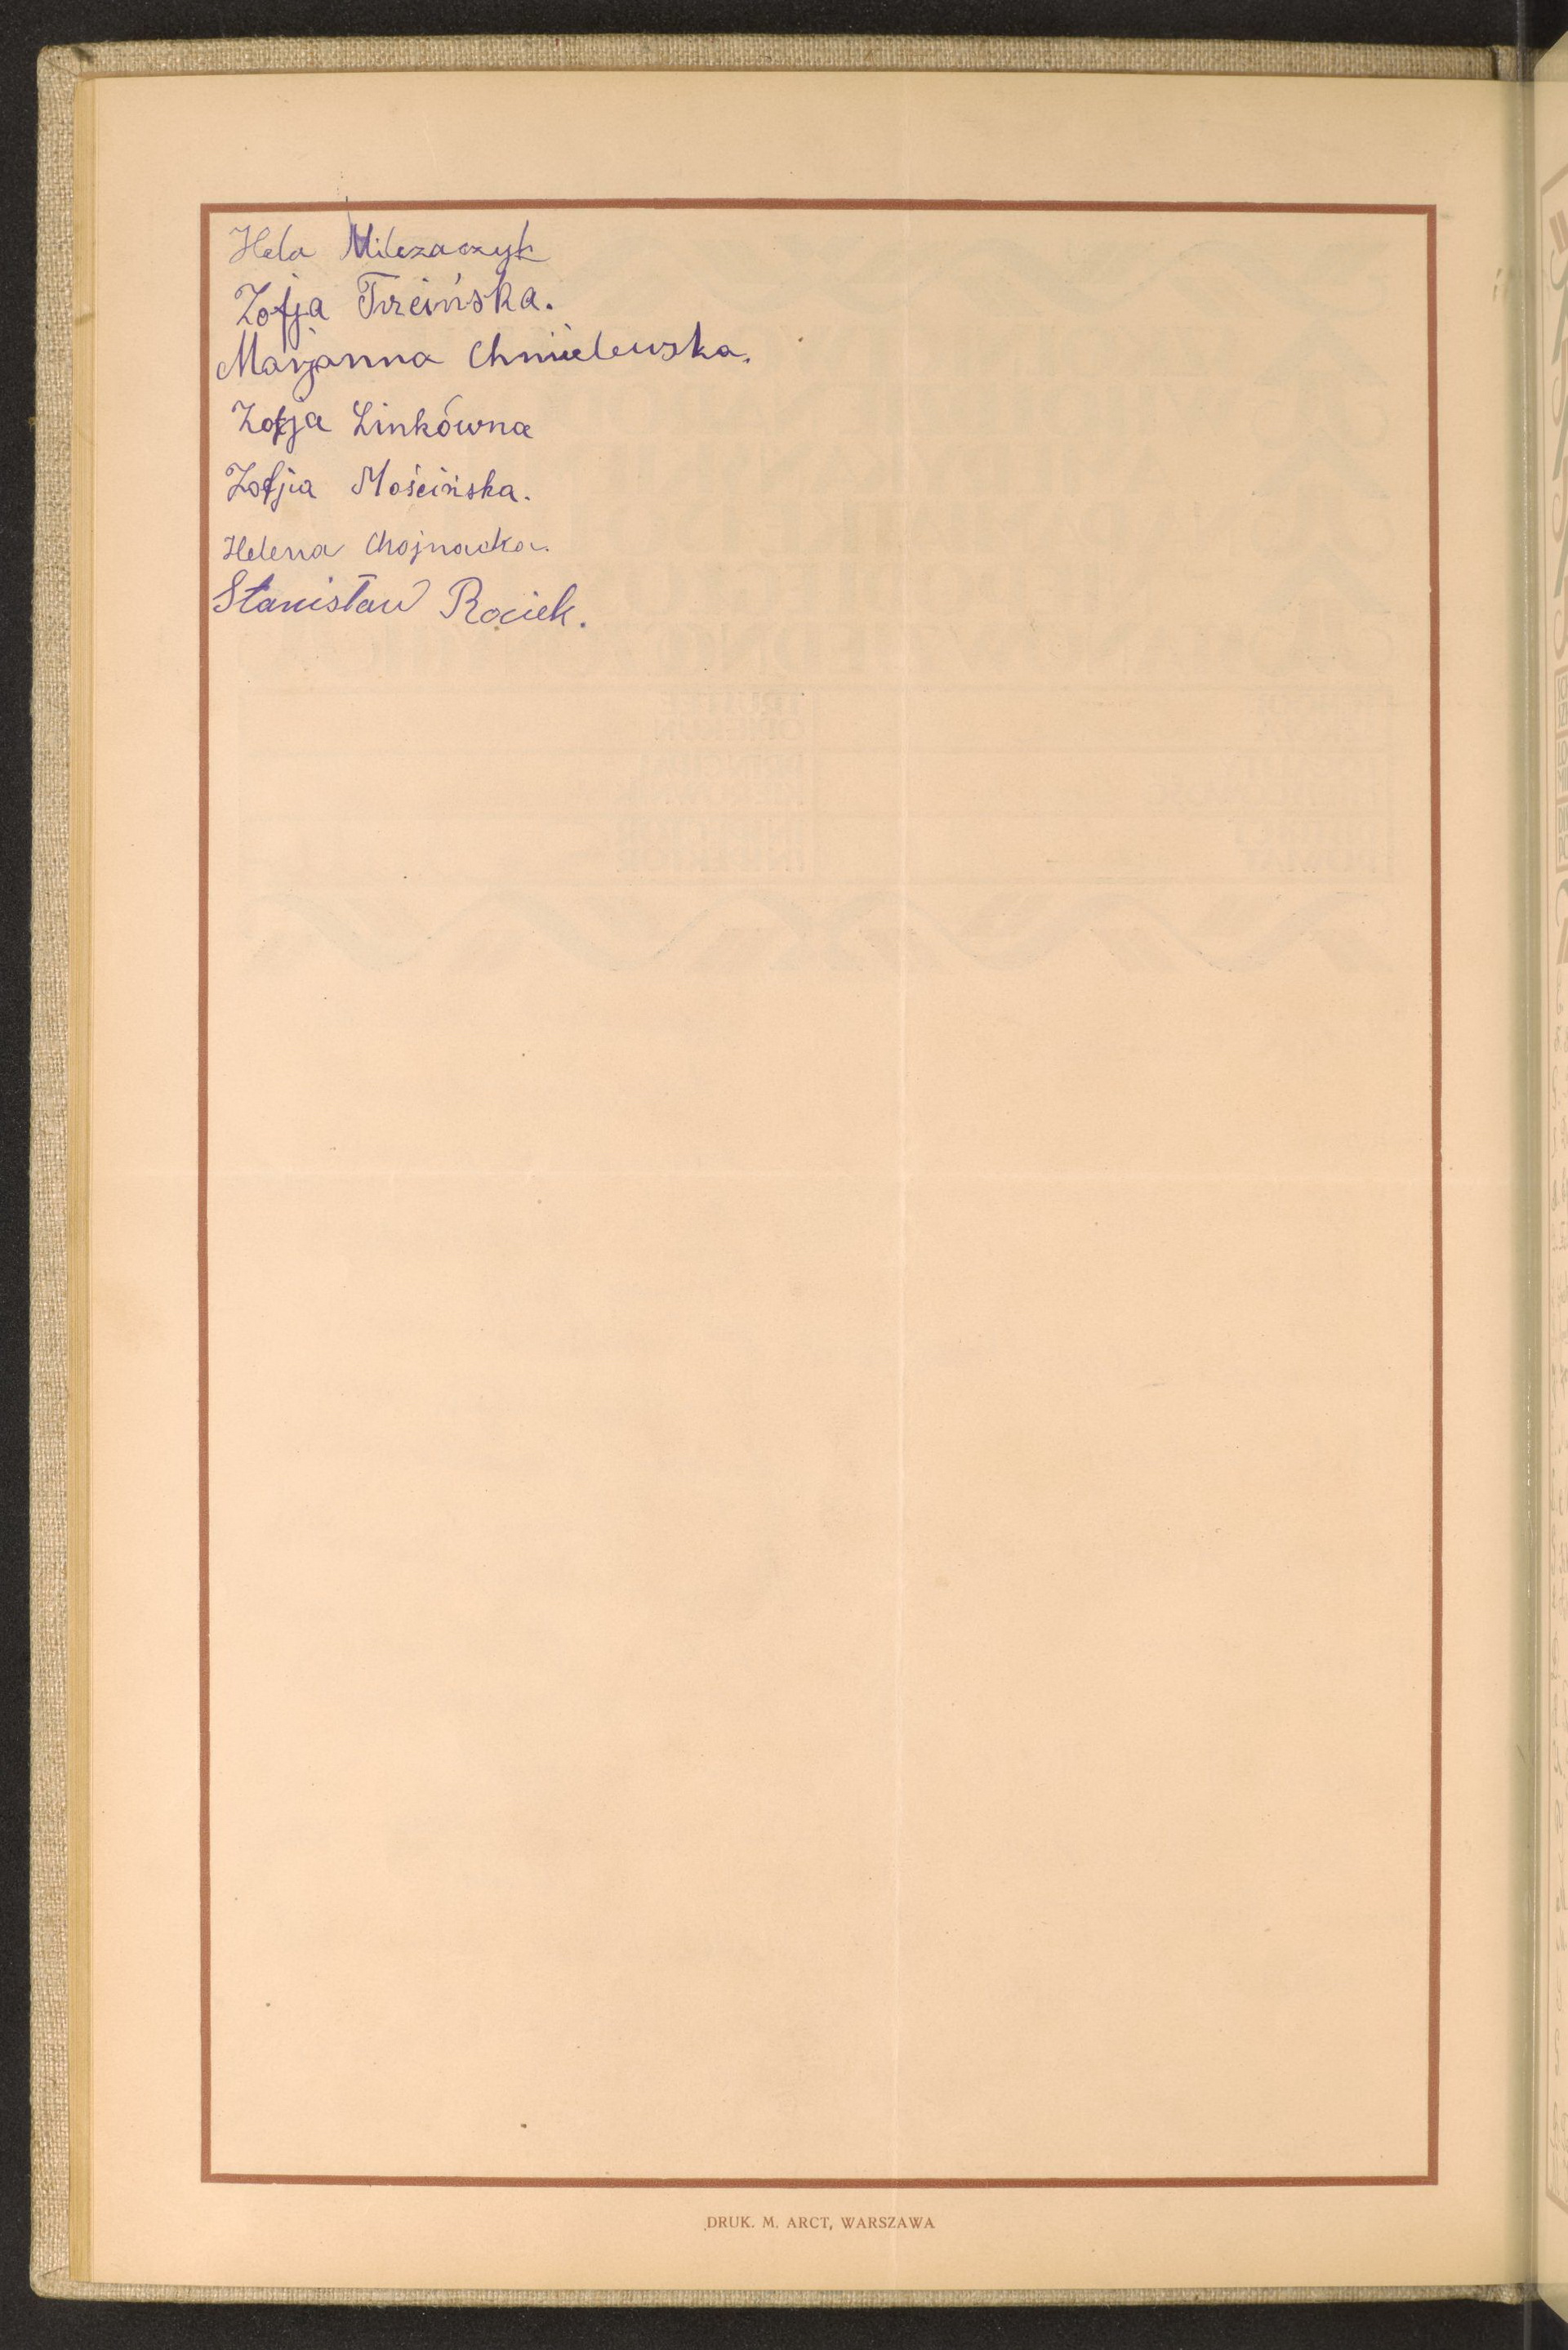 Hela Milczaczyk
Zofja Trzcińska.
Marjanna Chmielewska.
Zofja Linkówna
Zofjia Mościńska.
Helena Chojnacka.
Stanisław Rociek.
DRUK. M. ARCT, WARSZAWA